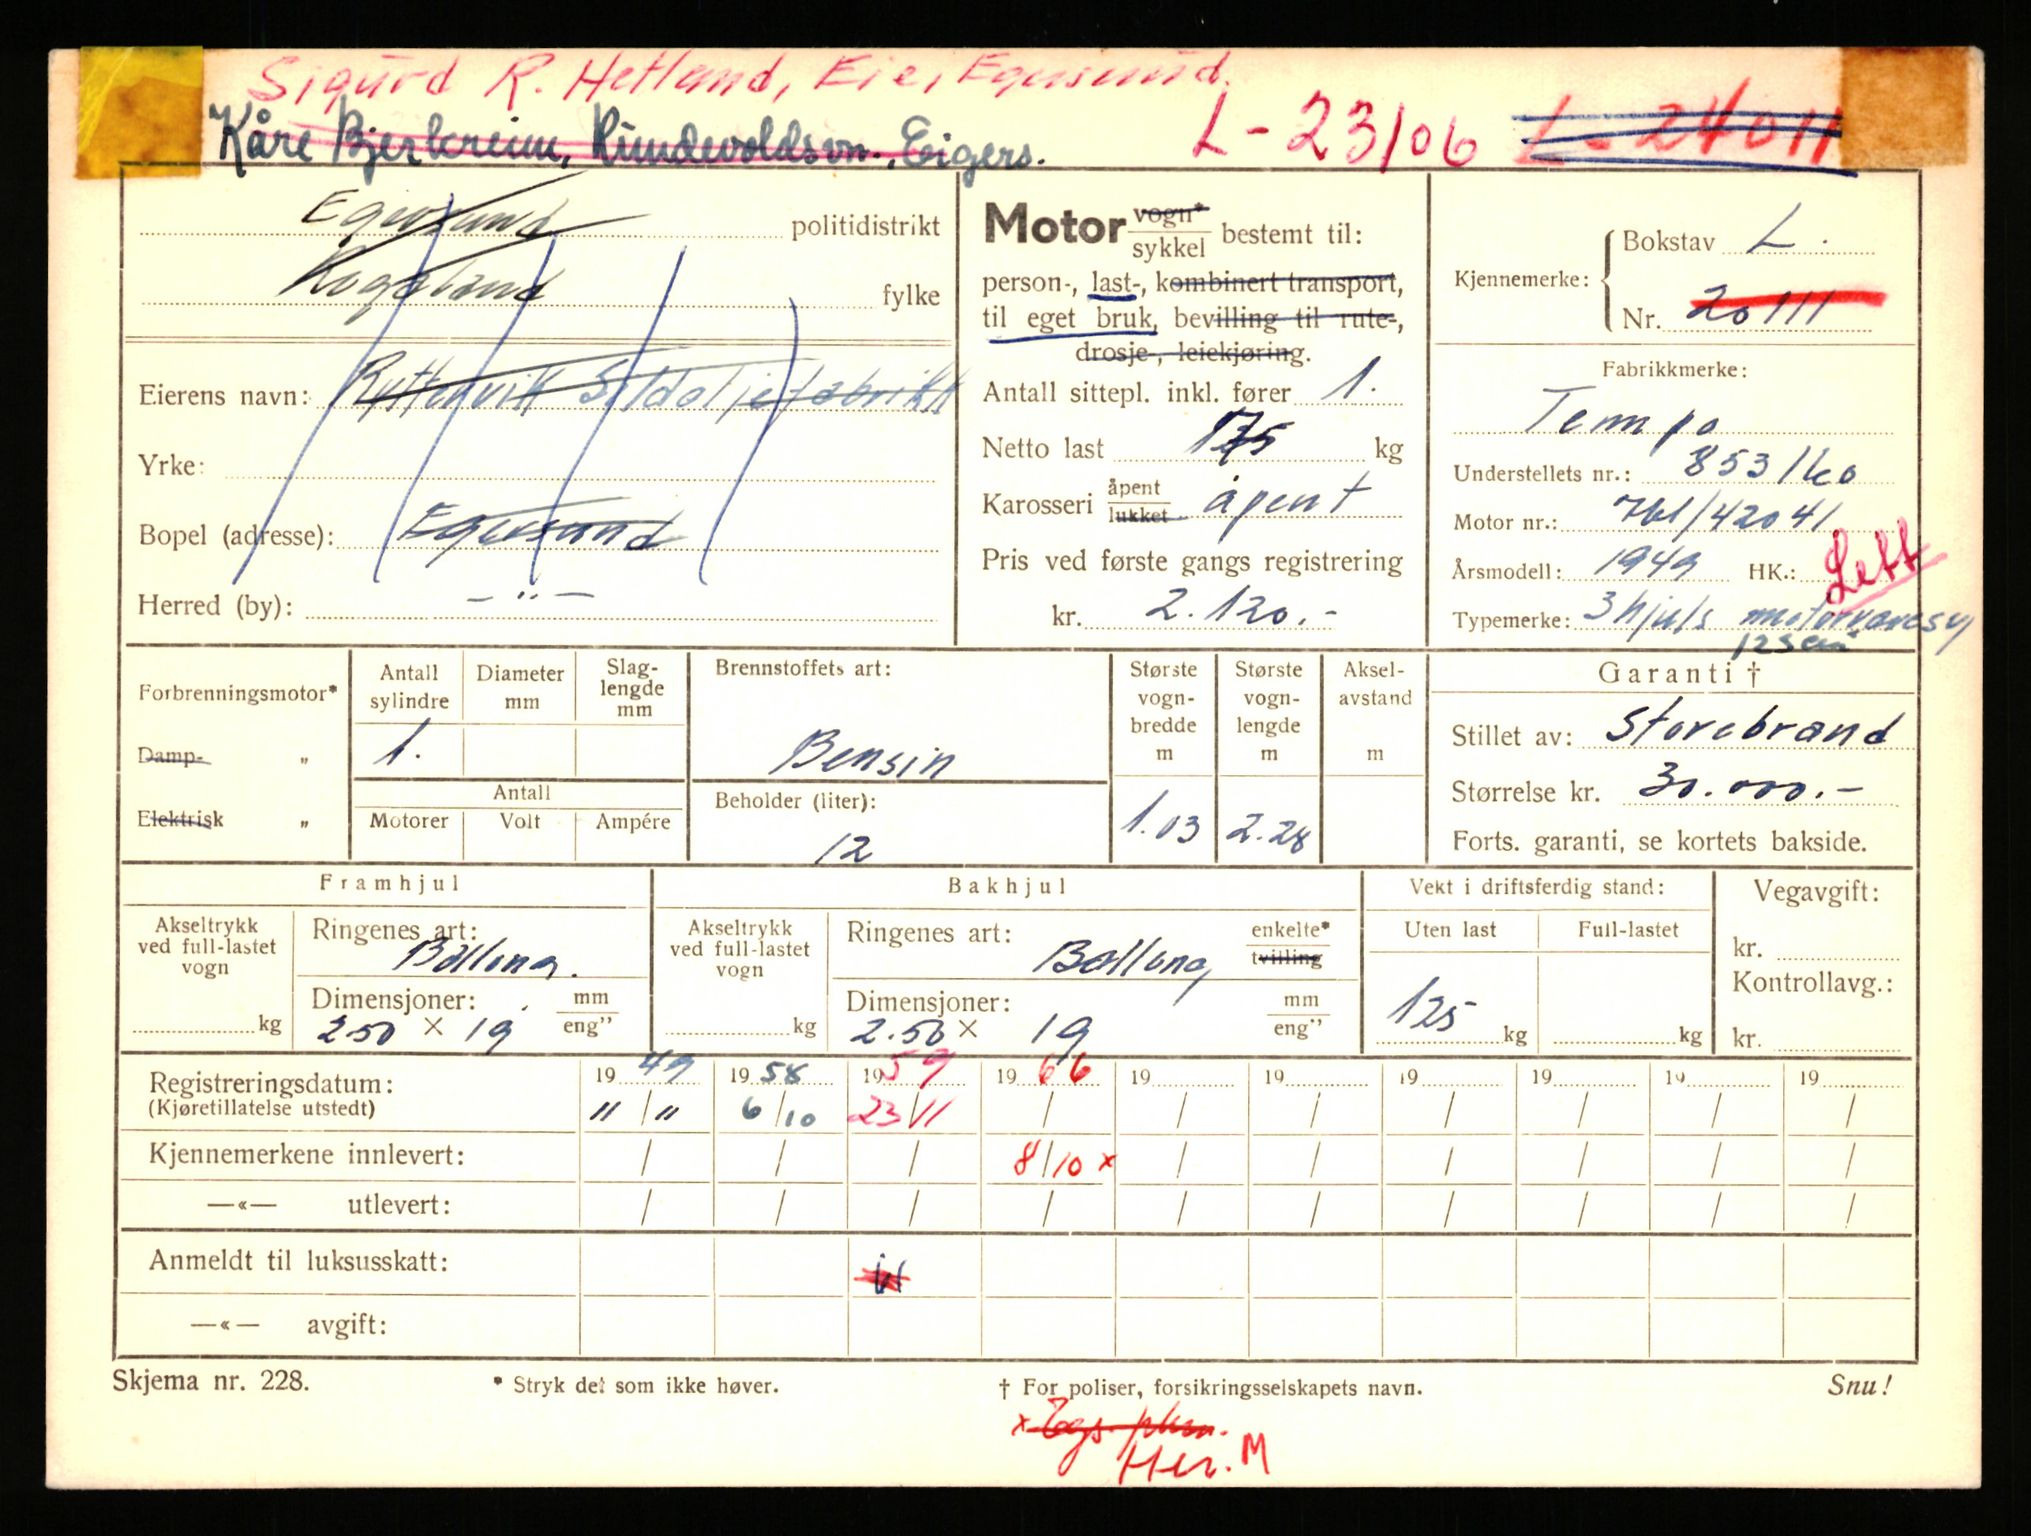 Sigurd R. Hetland, Eie, Egersund.
Kåre Bjerkreim, Rundevoldsvn., Eigers.
L-23106 L-24011
Egersund politidistrikt
Rogaland fylke
Eierens navn: Ryttervik Sildoljefabrikk
Yrke:
Bopel (adresse): Egersund
Herred (by): — " —
Motor vogn*
sykkel bestemt til:
person-, last-, kombinert transport,
til eget bruk, bevilling til rute-,
drosje-, leiekjøring.
Antall sittepl. inkl. fører 1.
Netto last 175 kg
Karosseri åpent
lukket åpent
Pris ved første gangs registrering
kr. 2.120.-
Kjennemerke: Bokstav L.
Nr. 20111
Fabrikkmerke:
Tempo
Understellets nr.: 853160
Motor nr.: 761/42041
Årsmodell: 1949 HK.: Lett
Typemerke: 3 hjuls motorvaresy
125 cm
Forbrenningsmotor*
Damp- "
Elektrisk "
Antall
sylindre
1.
Diameter
mm
Slag-
lengde
mm
Antall
Motorer Volt Ampére
Brennstoffets art:
Bensin
Beholder (liter):
12
Største
vogn-
bredde
m
1.03
Største
vogn-
lengde
m
2.28
Aksel-
avstand
m
Garanti †
Stillet av: Storebrand
Størrelse kr. 30.000.-
Forts. garanti, se kortets bakside.
Framhjul
Akseltrykk
ved full-lastet
vogn
kg
Ringenes art:
Ballong.
Dimensjoner: mm
250 × 19 eng"
Bakhjul
Akseltrykk
ved full-lastet
vogn
kg
Ringenes art: enkelte*
Ballong tvilling
Dimensjoner: mm
2.50 × 19 eng"
Vekt i driftsferdig stand:
Uten last Full-lastet
125 kg kg
Vegavgift:
kr.
Kontrollavg.:
kr.
Registreringsdatum: 19 49 19 58 19 59 19 66 19 19 19 19 19 19
(Kjøretillatelse utstedt) " / " 6/10 23/11 / / / / / / /
Kjennemerkene innlevert: / / / 8/10 x / / / / / /
—«— utlevert: / / / / / / / / / /
Anmeldt til luksusskatt:
—«— avgift:
Skjema nr. 228. * Stryk det som ikke høver. † For poliser, forsikringsselskapets navn. Snu!
x
Her. M